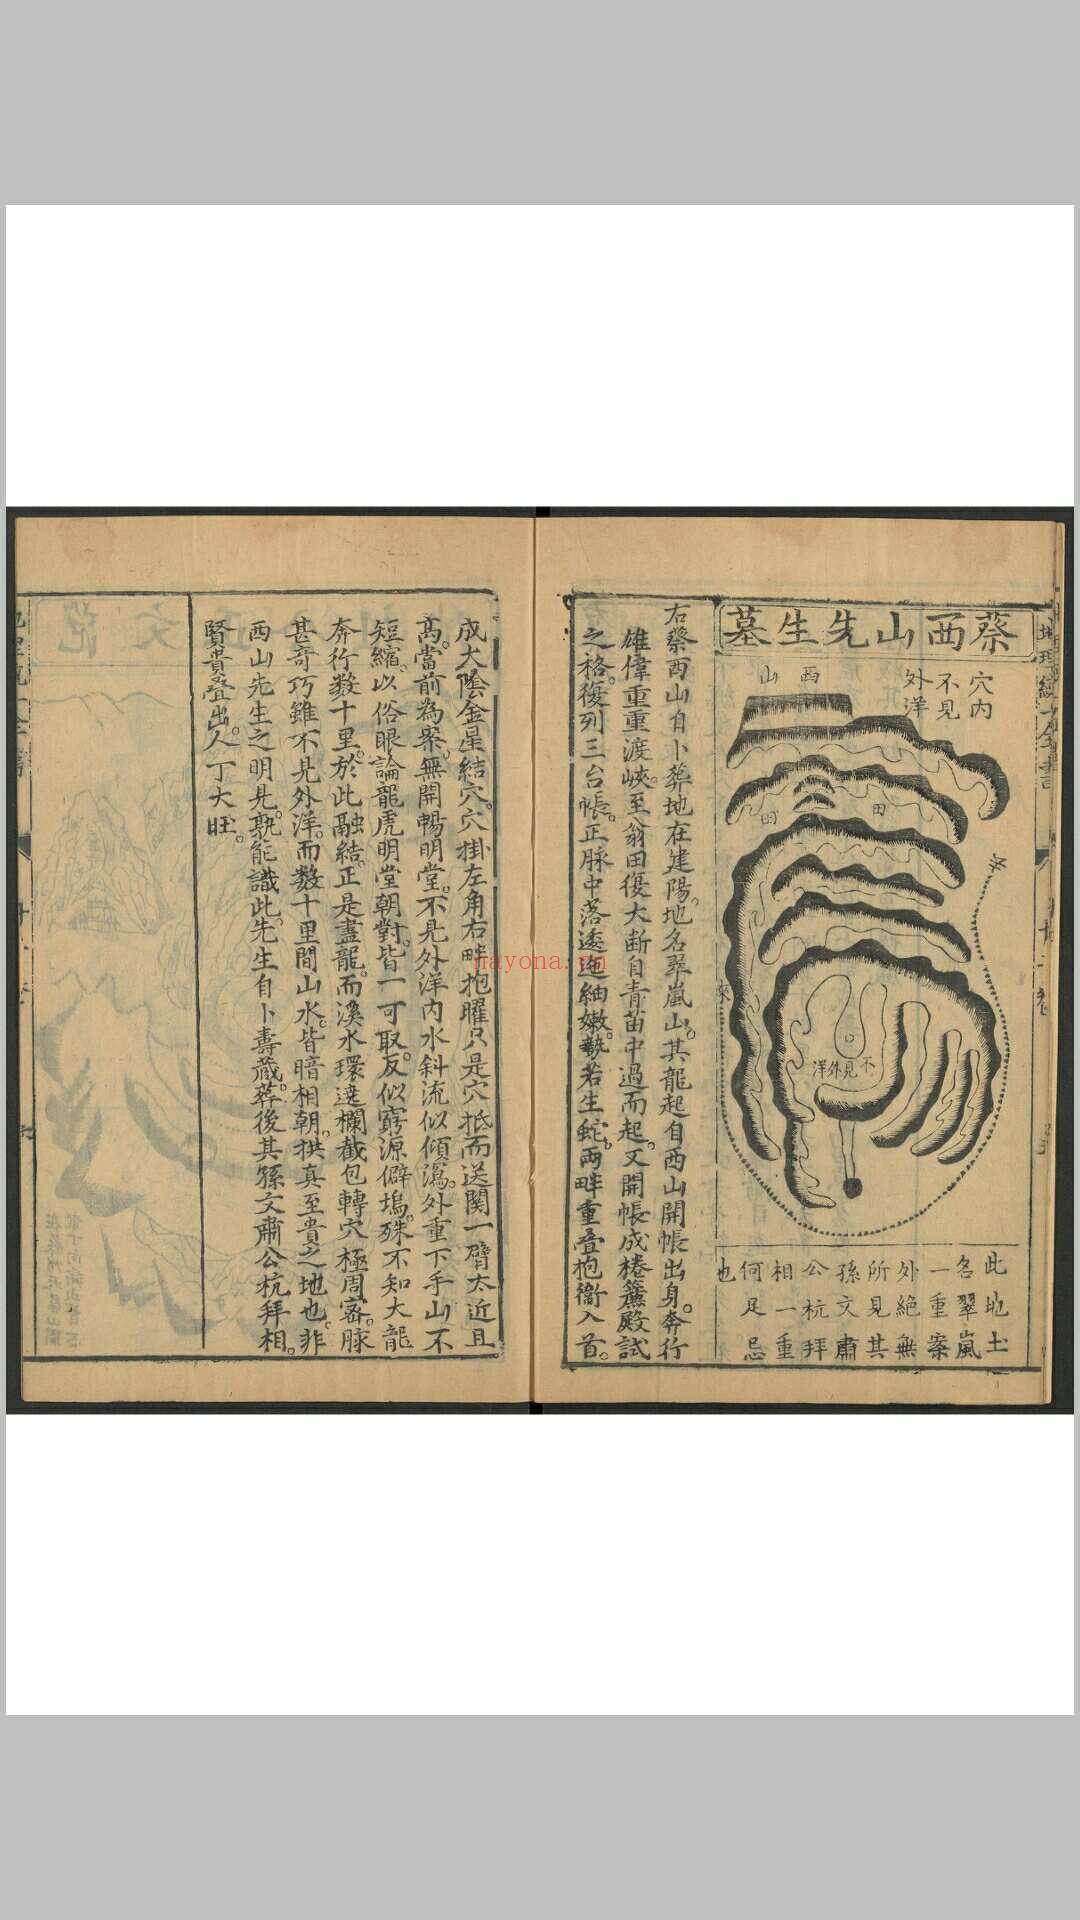 蔡西山先生墓
穴內
不見
外洋
西山
田
田
水
來
不見外洋
此地土
名翠嵐
一重案
外絕無
所見其
孫文肅
公杭拜
相一重
何足忌
也
右蔡西山自卜葬地在建陽。地名翠嵐山。其龍起自西山開帳出身。奔行
雄偉重重渡峽。至翁田復大斷自青苗中過而起。又開帳成捲簾殿試
之格。復列三台帳。正脉中落逶迤細嫩。勢若生蛇。兩畔重叠抱衛入首。
成大陰金星結穴。穴掛左角右畔抱曜只是穴抵而送関一臂太近且
高。當前為案。無開暢明堂。不見外洋內水斜流似傾瀉。外重下手山不
短縮。以俗眼論龍虎明堂朝對。皆一可取。反似窮源僻塢。殊不知大龍
奔行数十里。於此融結。正是盡龍。而溪水環遶欄截包轉穴極周密。脉
甚奇巧雖不見外洋。而数十里間山水。皆暗相朝。拱真至貴之地也。非
西山先生之明見。孰能識此。先生自卜壽藏。葬後其孫文肅公杭拜相。
賢貴叠出。人丁大旺。
nayona.cn